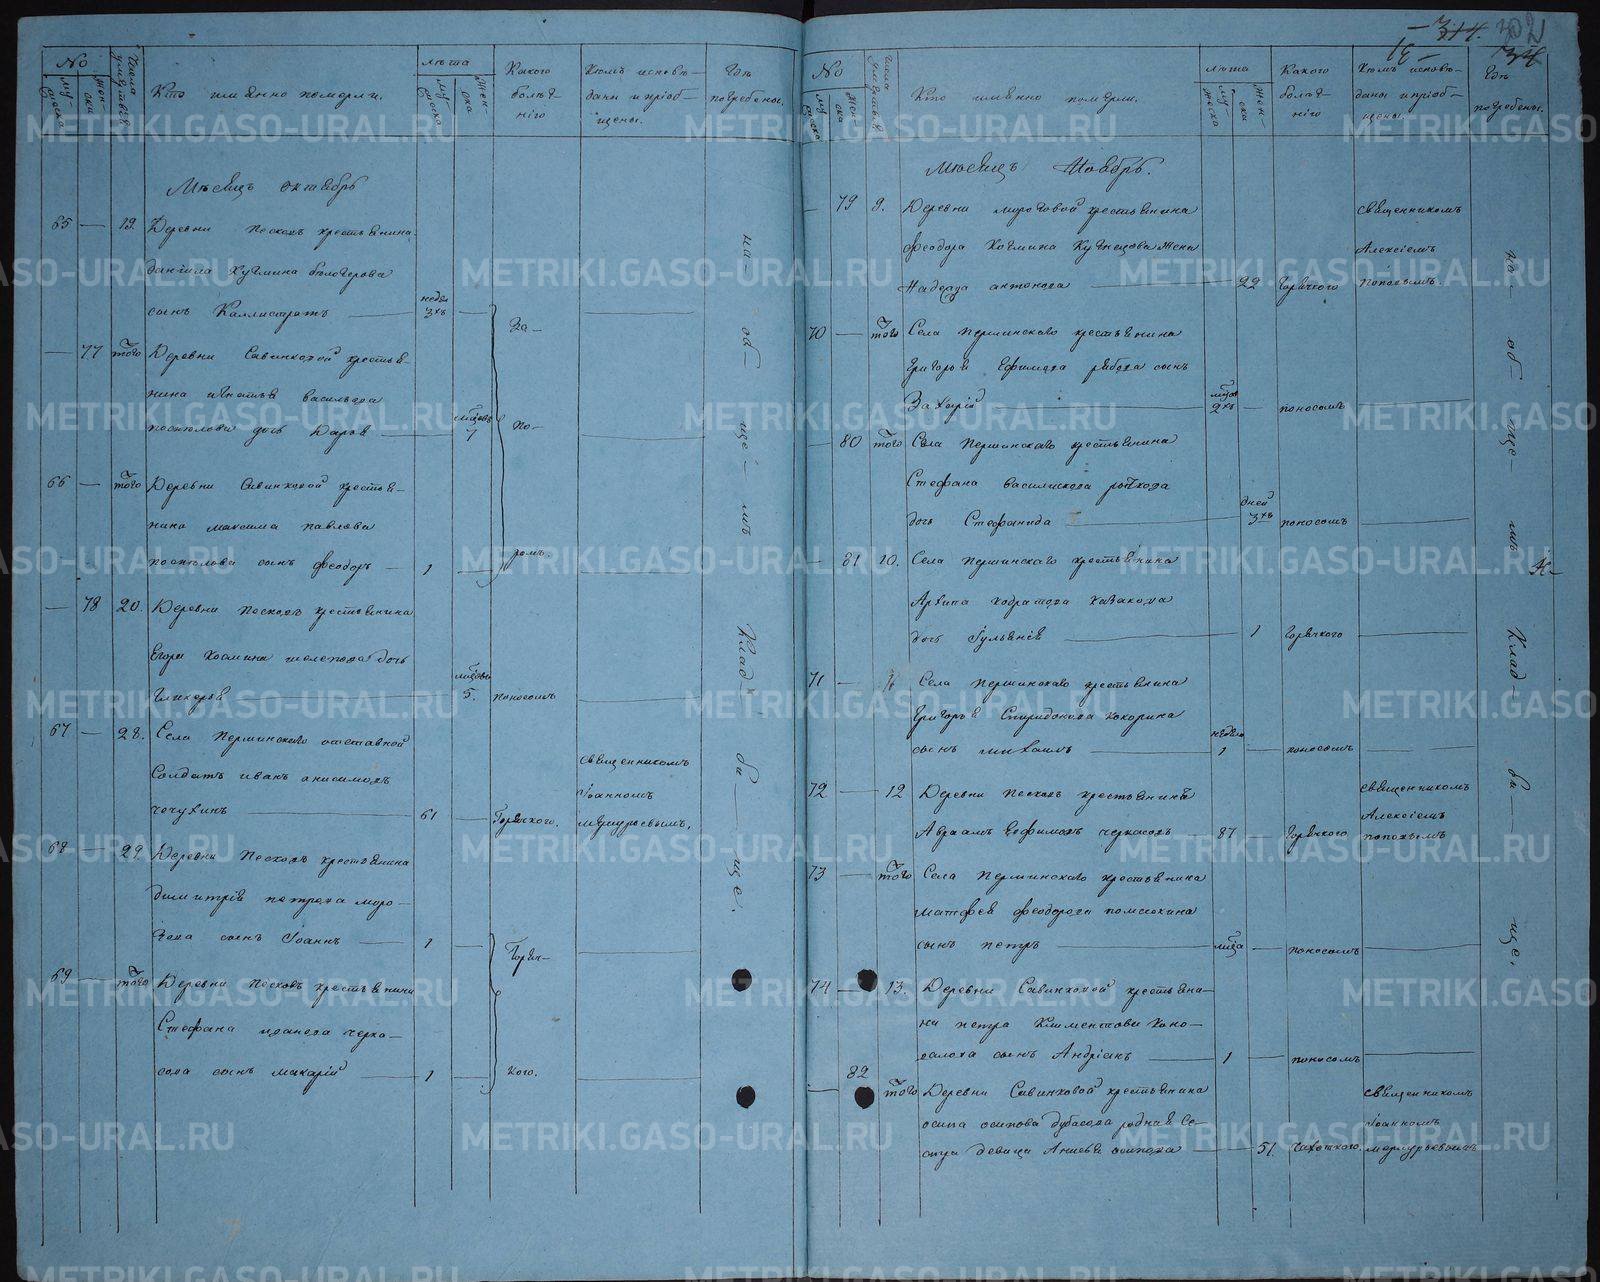 №
муска
женска
Числа умертвія
Кто именно померли.
лѣта
мужеска
женска
Какого болѣзніго
Кѣмъ исповѣданы и пріобщены.
Гдѣ погребены.
Мѣсяцъ октябрь
65 — 19. Деревни Песковъ крестьянина
даніила Кузмина
сынъ Каллистратъ — недел 3хъ —
— 77 того Деревни Савинковой крестья-
нина игнатья васильева
поспѣлова дочь Дарья — мѣсяцъ 7
За-
по-
ромъ.
66 — того Деревни Савинковой крестья-
нина максима павлова
поспѣлова сынъ феодоръ — 1 —
— 78 20. Деревни Песковъ крестьянина
Егора Космина шелепова дочь
Гликерья — мѣсяцовъ 5. поносомъ
67 — 28. Села Першинскаго отставной
Солдатъ иванъ анисимовъ
чечулинъ — 61 — Горячкого.
священникомъ
Іоанномъ
меркурьевымъ.
68 — 29. Деревни Песковъ крестьянина
димитрія петрова моро-
зова сынъ Іоаннъ — 1 —
69 — того Деревни Песковъ крестьянина
Стефана иванова черка-
сова сынъ макарій — 1 —
Горяч-
кого.
на- об- ще- мъ клад- би- ще.
314. 302
№
муска
женска
Числа умертвія
Кто именно померли.
лѣта
мужеска
женска
Какого болѣзніго
Кѣмъ исповѣданы и пріобщены.
Гдѣ погребены.
Мѣсяцъ Ноябрь.
— 79 9. Деревни крестьянина
феодора Козмина Кузнецова жена
Надежда антонова — 22 Горячкого
священникомъ
Алексіемъ
поповымъ.
70 — того Села Першинскаго крестьянина
Григорья Ефимова сынъ
Захарій — мѣсяц 2хъ — поносомъ
— 80 того Села Першинскаго крестьянина
Стефана василискова
дочь Стефанида — дней 3хъ поносомъ
— 81 10. Села Першинскаго крестьянина
Архипа кодратова казакова
дочь Іульянія — 1 Горячкого
71 — Села Першинскаго крестьянина
Григорья Спиридонова кокорина
сынъ михаилъ — неделя 1 — поносомъ
72 — 12 Деревни Песковъ крестьянинъ
Авраамъ Евфимовъ черкасовъ — 87 — Горячкого
священникомъ
Алексіемъ
поповымъ
73 — того Села Першинскаго крестьянина
матфея феодорова
сынъ петръ — мѣсяца — поносомъ
74 — 13. Деревни Савинковой крестьяни-
на петра Климентова коно-
валова сынъ Андріянъ — 1 — поносомъ
— 82 того Деревни Савинковой крестьянина
осипа осипова дубасова родная се-
стра девица осипова — 51. Чахоткого.
священникомъ
Іоанномъ
меркурьевымъ
на- об- ще- мъ клад- би- ще.
METRIKI.GASO-URAL.RU